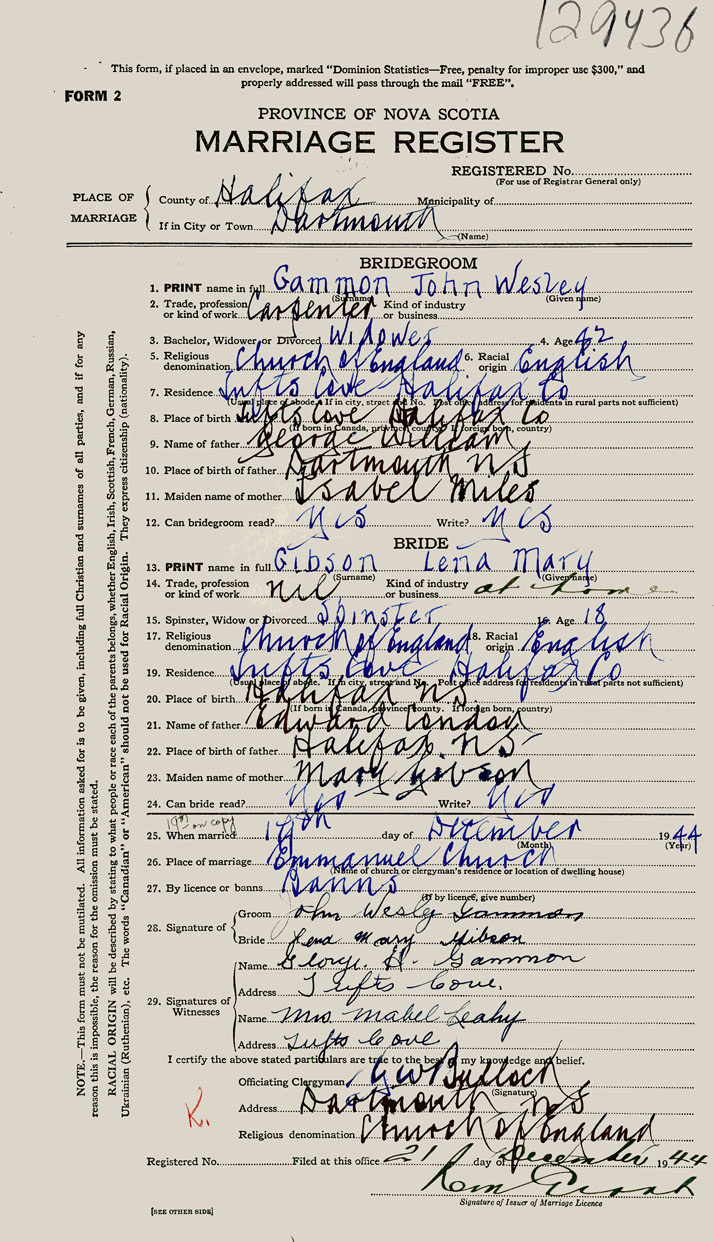 129436
This form, if placed in an envelope, marked "Dominion Statistics—Free, penalty for improper use $300," and
properly addressed will pass through the mail "FREE".
FORM 2
PROVINCE OF NOVA SCOTIA
MARRIAGE REGISTER
REGISTERED No.
(For use of Registrar General only)
PLACE OF MARRIAGE
County of Halifax Municipality of
If in City or Town Dartmouth
(Name)
BRIDEGROOM
1. PRINT name in full Gammon John Wesley
(Surname) (Given name)
2. Trade, profession or kind of work Carpenter Kind of industry or business
3. Bachelor, Widower or Divorced Widower 4. Age 42
5. Religious denomination Church of England 6. Racial origin English
7. Residence Tufts Cove Halifax Co
(Usual place of abode. If in city, street and No. Post office address for residents in rural parts not sufficient)
8. Place of birth Tufts Cove Halifax Co
(If born in Canada, province, county. If foreign born, country)
9. Name of father George William
10. Place of birth of father Dartmouth N S
11. Maiden name of mother Isabel Miles
12. Can bridegroom read? Yes Write? Yes
BRIDE
13. PRINT name in full Gibson Lena Mary
(Surname) (Given name)
14. Trade, profession or kind of work nil Kind of industry or business at home
15. Spinster, Widow or Divorced Spinster 16. Age 18
17. Religious denomination Church of England 18. Racial origin English
19. Residence Tufts Cove Halifax Co
(Usual place of abode. If in city, street and No. Post office address for residents in rural parts not sufficient)
20. Place of birth Halifax N S
(If born in Canada, province, county. If foreign born, country)
21. Name of father Edward Condon
22. Place of birth of father Halifax N S
23. Maiden name of mother Mary Gibson
24. Can bride read? Yes Write? Yes
on copy
25. When married day of December 1944
(Month) (Year)
26. Place of marriage Emmanuel Church
(Name of church or clergyman's residence or location of dwelling house)
27. By licence or banns Banns
(If by licence, give number)
28. Signature of
Groom John Wesley Gammon
Bride Lena Mary Gibson
29. Signatures of Witnesses
Name George. H. Gammon
Address Tufts Cove.
Name Mrs Mabel Leahy
Address Tufts Cove
I certify the above stated particulars are true to the best of my knowledge and belief.
Officiating Clergyman Bullock
(Signature)
Address Dartmouth N S
Religious denomination Church of England
K.
Registered No. Filed at this office 21 day of December 1944
Signature of Issuer of Marriage Licence
[SEE OTHER SIDE]
NOTE.—This form must not be mutilated. All information asked for is to be given, including full Christian and surnames of all parties, and if for any
reason this is impossible, the reason for the omission must be stated.
RACIAL ORIGIN will be described by stating to what people or race each of the parents belongs, whether English, Irish, Scottish, French, German, Russian,
Ukrainian (Ruthenian), etc. The words "Canadian" or "American" should not be used for Racial Origin. They express citizenship (nationality).